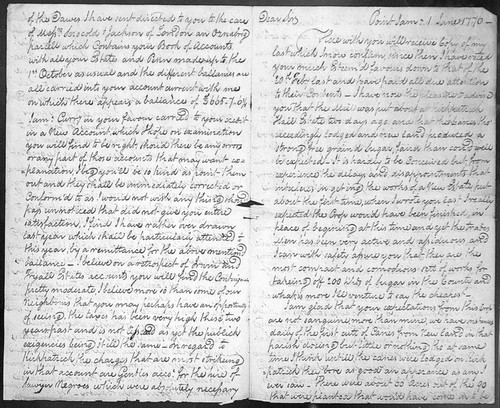 of the Dawes I have sent directed to you to the care
of Mess.rs Snogold & Jackson of London an Oznabrg
parcell which Contains your Book of Accounts
with all your Estates and Penn made up to the
1st October as usual and the different ballances are
all carried into your account current with me
on which there appears a ballance of £665.7.0¼
Jam: Curr.y in your favour carried to your debit
in a New Account, which I hope on examination
you will find to be right, should there be any error
or any part of those accounts that may want ex
planation, I beg you'll be so kind as point them
out and they shall be immediately corrected or
Conform'd to as I would not wish any thing shou'd
pass unnoticed that did not give you entire
satisfaction, I find I have rather over drawn
last year which shall be particularly attended to
this year, by a remittance for the above mentioned
ballance — I believe on a retrospect of
Tryall Estates accounts you will find the Contingencys
pretty moderate, I believe more so than some of our
Neighbours that you may perhaps have an opportunity
of seeing, the taxes has been very high these two
years past and is not as yet the publick
exigencies being still the same — In regard to
Kirkpatrick the charges that are most striking
in that account are Gentles acco.t for the hire of
Negroes which were absolutely necessary
Dear Sir
Point Jam.a 1 June 1770 —
This with you will receive Copy of my
last which I now confirm, since then I have rec.ed
your much Esteem'd favours down to that of the
29th Feb. last and have paid all due attention
to their Contents — I have now the pleasure to advise
you that the Mill was put about at Kirkpatrick
Hall Estate ten days ago and that the Canes tho'
exceedingly Lodged and new Land produced a
Strong free ground Sugar, fairer than could well
be expected — It is hardly to be Conceived but from
experience the delays and disappointments that
in getting the works of a New Estate put
about the first time, when I wrote you last I really
expected the Crop would have been finished, in
place of beginning at this time and yet the Trades
men has been very active and assiduous and
I can with safety assure you that they are the
most compact and comodious sett of works for
takeing off 200 Hhds of sugar in the County and
what is more I'll venture to say the cheapest —
I am glad that your expectations from this Crop
are not sanguine, nor I am mine, we have instances
daily of the first cutt of Canes from new Land in that
parish Cloaing but little or nothing, tho' at same
time I think untill the Canes were Lodged on Kirk
patrick they bore as good an appearance as any I
ever saw — There were about 20 acres out of the 90
that were planted that would have come in to be